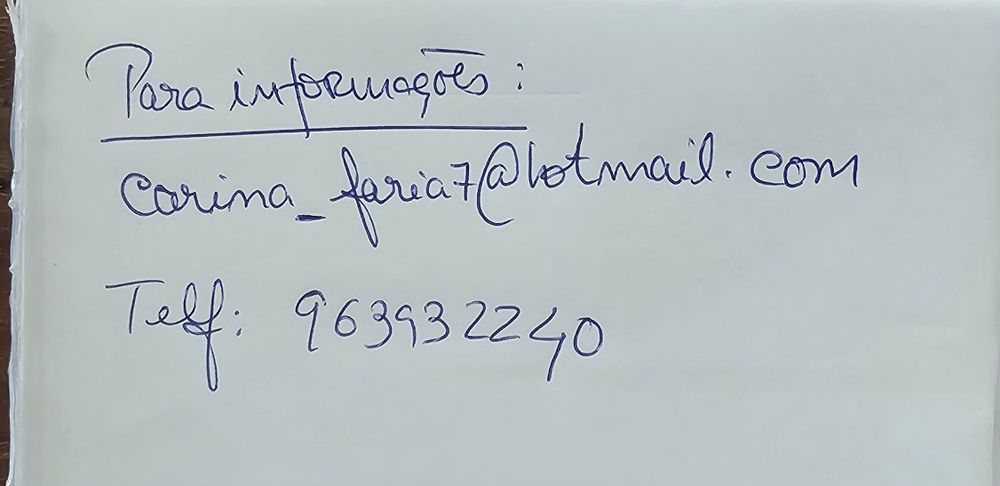 Para informações:
carina_faria7@hotmail.com
Telf: 963932240